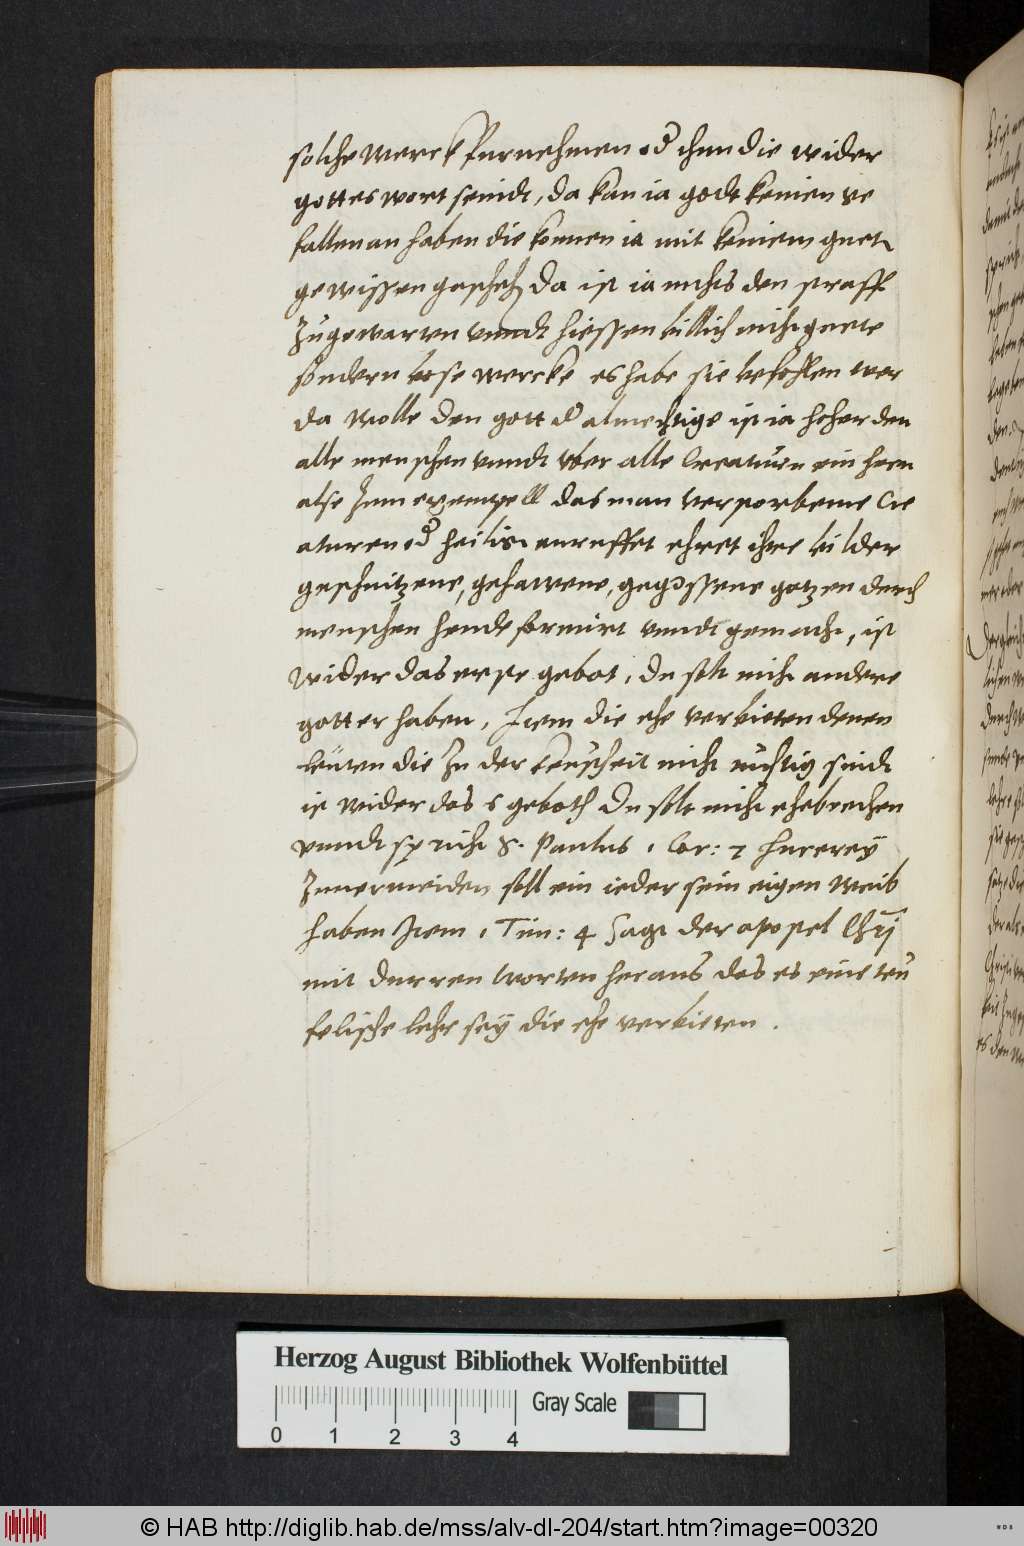 solche werck furnehmen od thun die wider
gottes wort seindt, da kan ia godt keinen ge
fallen an haben die konnen ia mit keinem guetn
gewissen gescheh da ist ia nichts den straff
zugewarten vnndt hiessen billich nicht guete
sondern bose wercke es habe sie befohlen wer
da wolle den gott d almechtige ist ia hoher den
alle menschen vnndt vber alle Creaturn ein herr
alse zum exempell das man verstorbenne Cre
aturen od heilig anruffet ehret ihre bilder
geschnitzene, gehawene, gegossene gotzen durch
menschen hende formirt vnndt gemacht, ist
wider das erste gebot, du solt nicht andere
gotter haben, Item die ehe verbieten denen
leüten die zu der keuscheit nicht tüchtig sindt
ist wider das 6 geboth Du solt nicht ehebrechen
vnndt spricht S. Paulus 1 Cor: 7 hurerey
Zuuermeiden soll ein ieder sein eigen weib
haben Item 1 Tim: 4 sagt der apostel Chri
mit durren worten heraus das es eine teu
felische lehr sey die ehe verbieten.
Herzog August Bibliothek Wolfenbüttel
0 1 2 3 4 Gray Scale
© HAB http://diglib.hab.de/mss/alv-dl-204/start.htm?image=00320